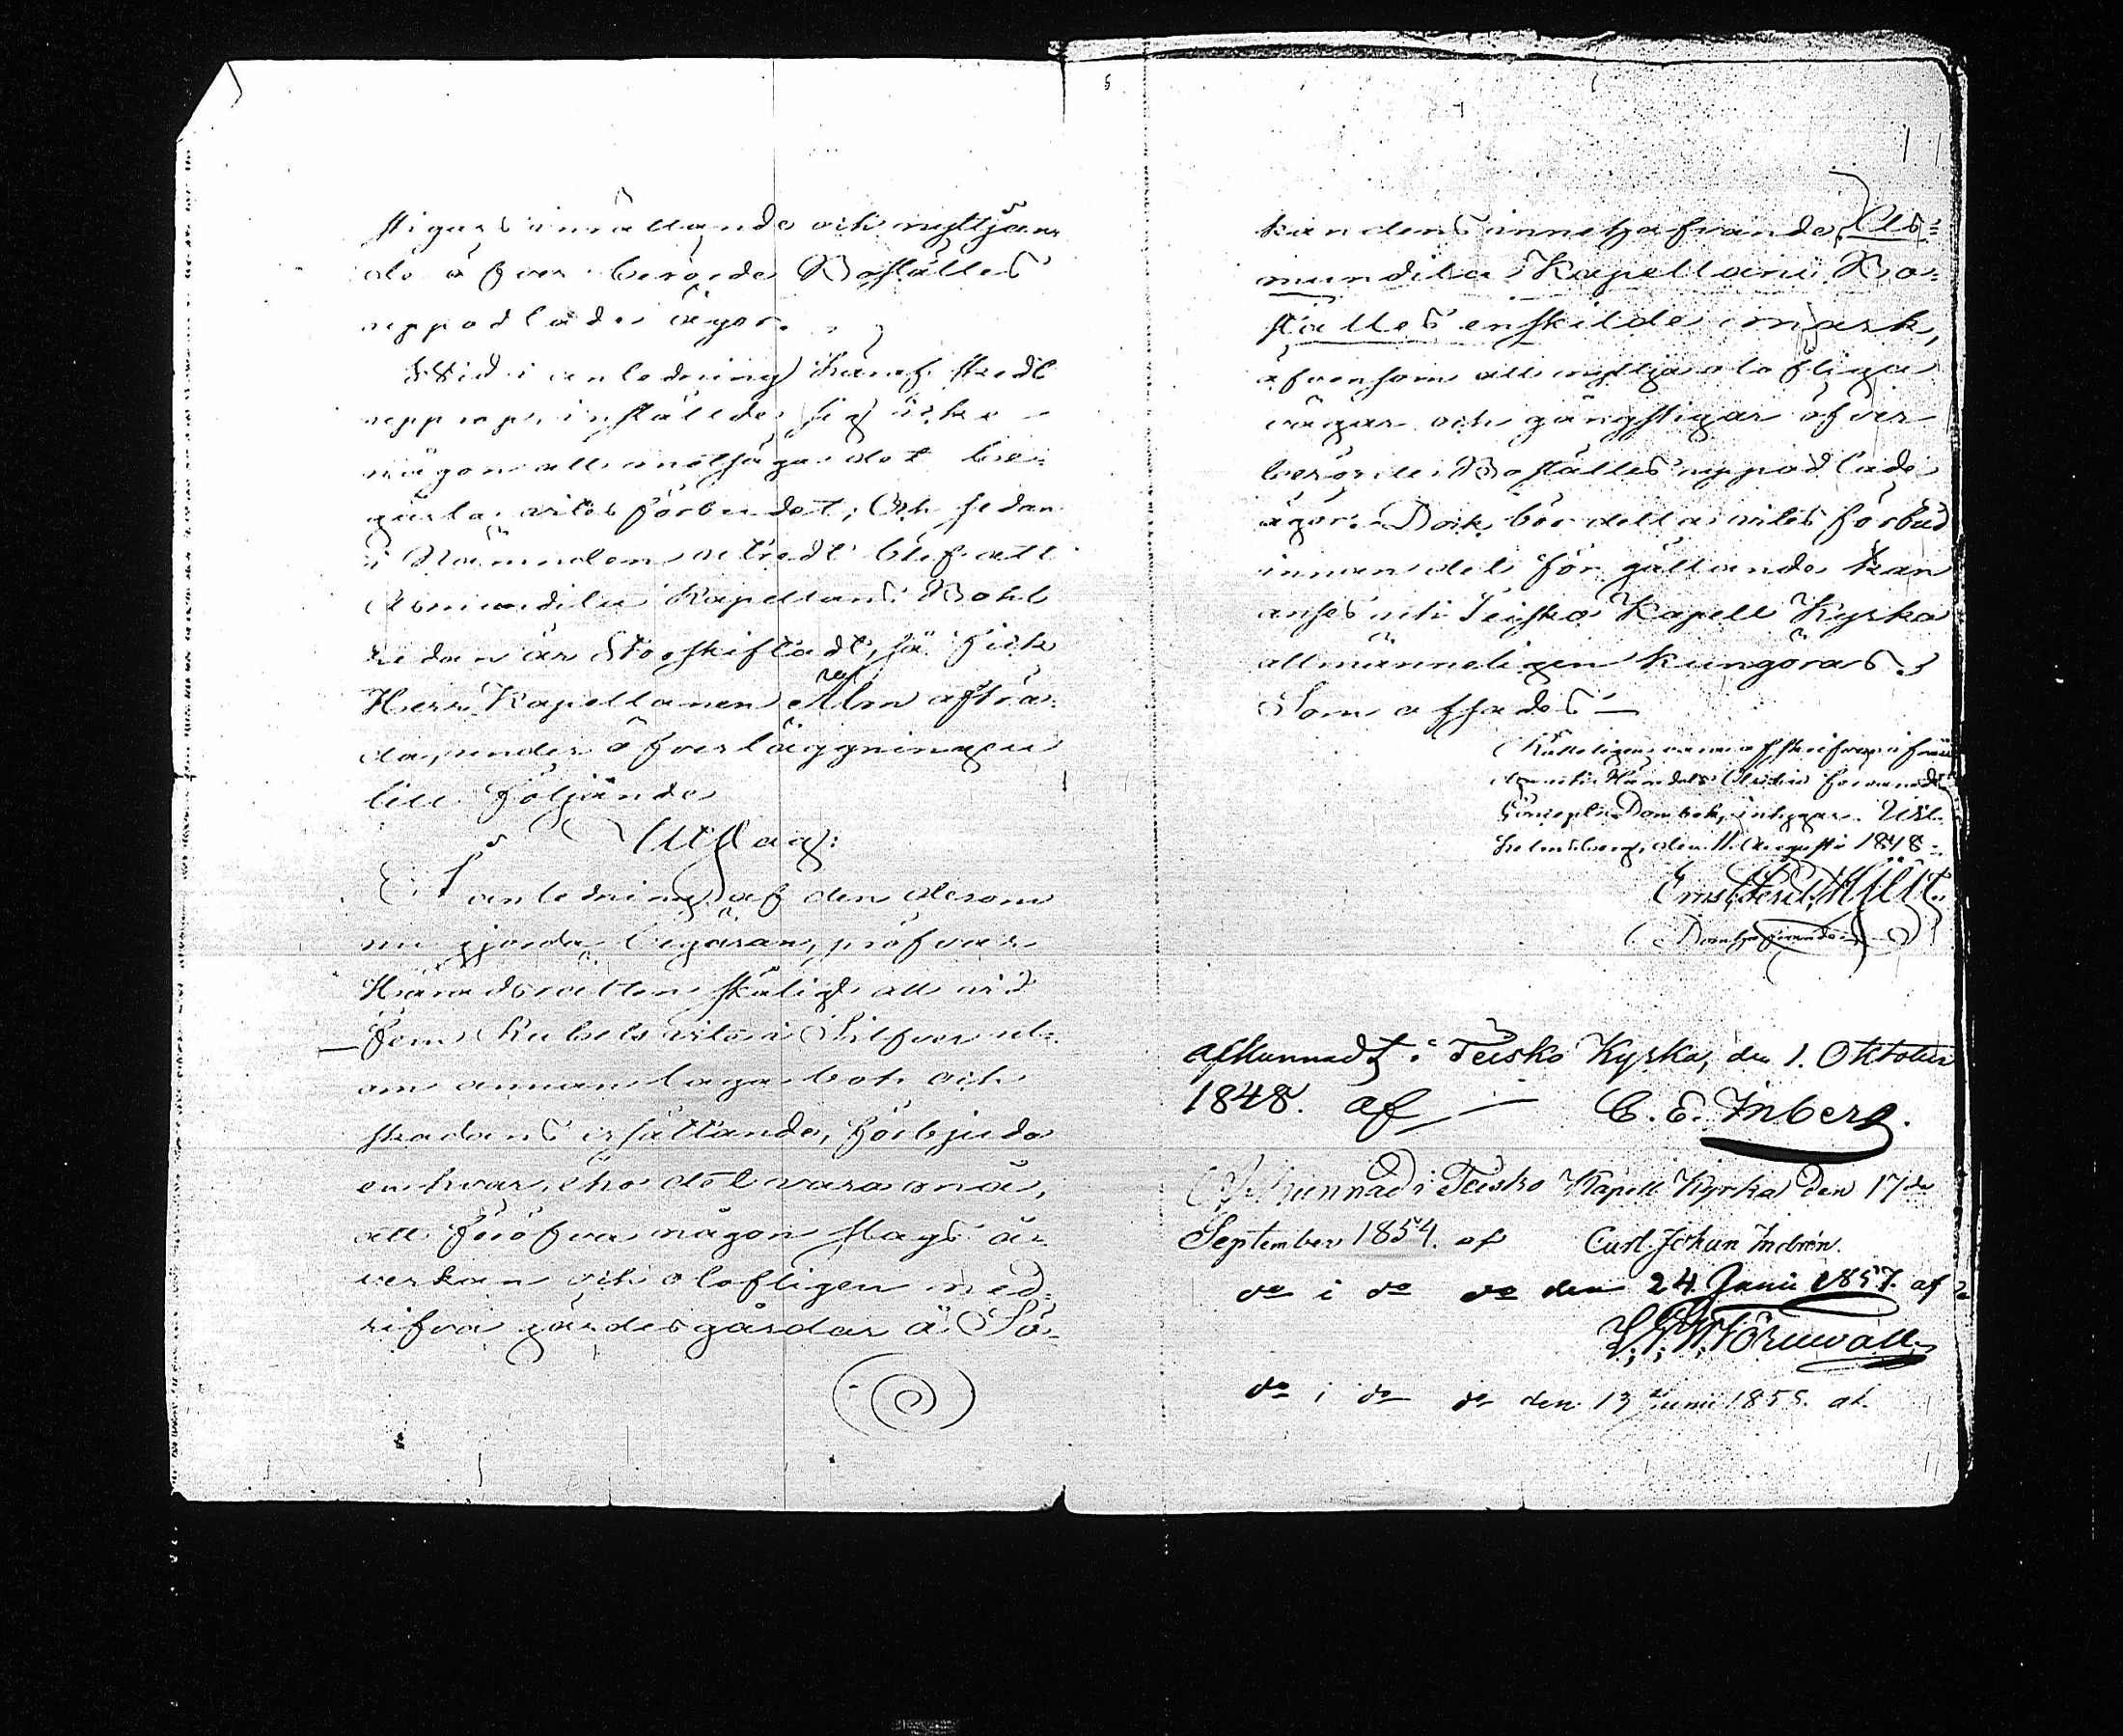 stigars inrättande och nyttjan-
de öfver berörde Boställes
uppodlade ägor.
Wid i anledning häraf skedt
upprop, inställde sig icke
någon att motsäga det be-
gärta vites förbudet; Och sedan
i Nämnden utredt blef att
Asmundila Kapellans Bohl
redan är Storskiftadt, så fick
Herr Kapellanen Alm afträ-
da, under öfverläggningen
till följande
Utslag:
I anledning af den derom
nu gjorda begäran, pröfvar
Häradsrätten skäligt att vid
Fem Rubels vite i Silfver ut-
om annan laga bot och
skadans ersättande, förbjuda
en hvar, eho det vara må,
att föröfva någon slags å-
verkan och olofligen ned-
rifva gärdesgårdar å Sö-
kandens innehafvande As-
mundila Kapellans Bo-
ställes enskilde mark,
äfvensom att nyttja olofliga
vägar och gångstigar öfver
berörde Boställes uppodlade
ägor. Dock bör detta vites förbud
innan det för gällande kan
anses uti Teisko Kapell Kyrka
allmänneligen kungöras.
Som afsades
den 11 Augusti 1848
Ernst Ferd.
Domhafvande
afkunnadt i Teisko Kyrka, den 1. Oktober
1848. af C. E. Inberg.
Afkunnad i Teisko Kapell Kyrka den 17de
September 1854. af Carl Johan Indrén.
do i do do den 24 Junii 1857. af
Törnwall
do i do do den 13 Juni 1858. af